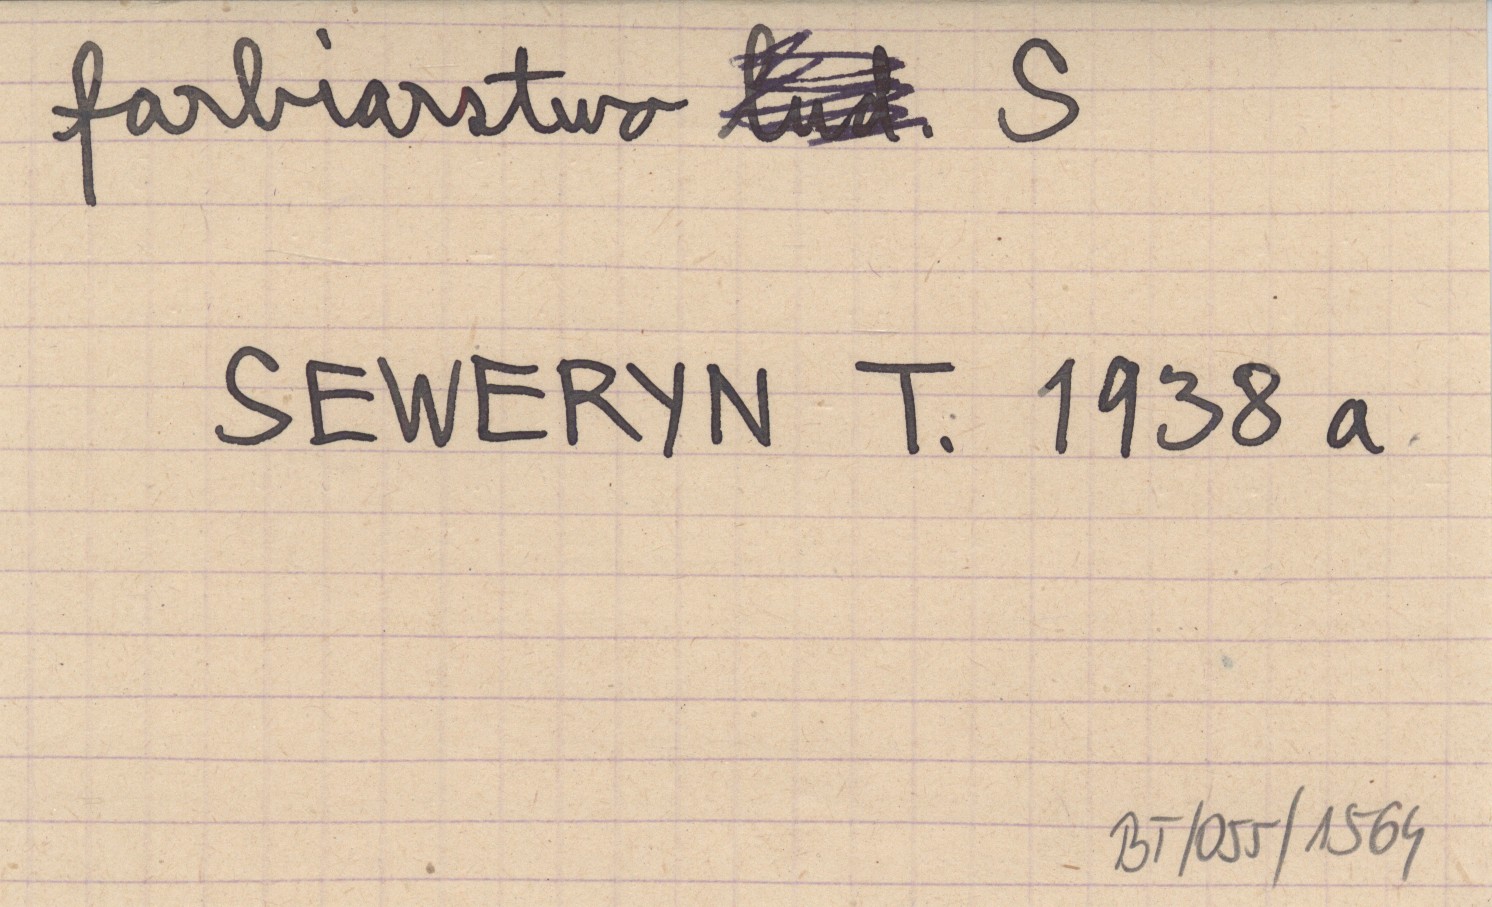 farbiarstwo lud. S
SEWERYN T. 1938 a.
BT/055/1564